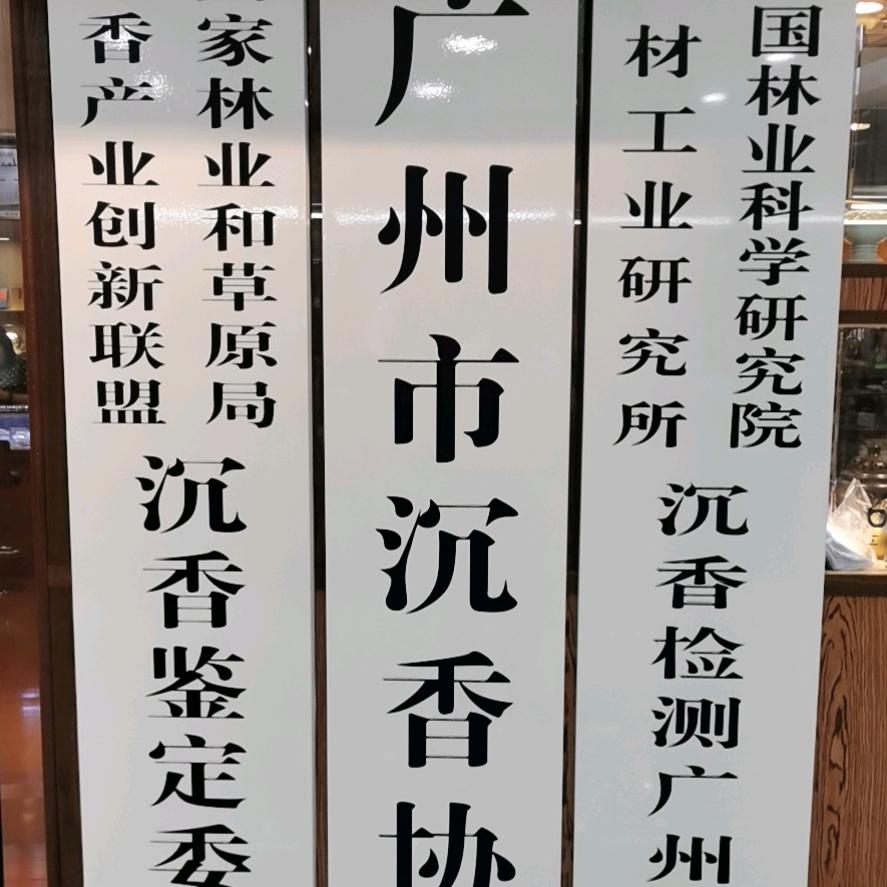 国林业科学研究院
材工业研究所
沉香检测广州
广州市沉香协
家林业和草原局
香产业创新联盟
沉香鉴定委